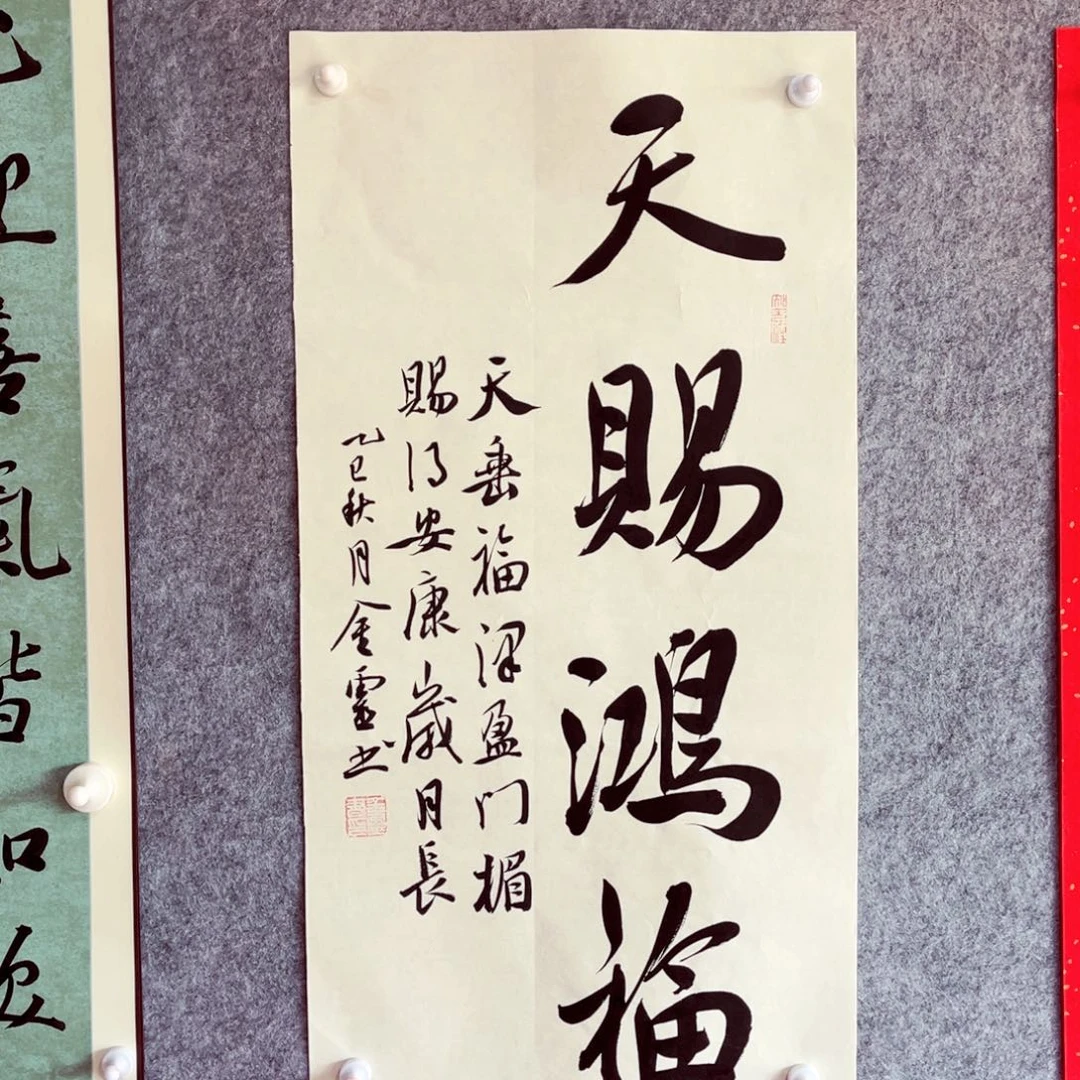 天賜鴻福
天垂福澤盈門楣
賜得安康歲月長
乙巳秋月金靈书
喜氣皆如